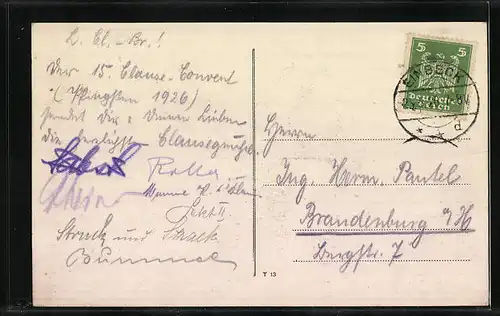 L. Cl. - Br.!
Der 15. Clause-Convent
(Pfingsten 1926)
sendet Dir u. Deinen Lieben
die herzlichsten Clausegrüße
Rolla
Sekt II
Struck und Strack
Bummel
5 5
EINBECK
Deutsches Reich
Herrn
Ing. Herm. Pantel
Brandenburg a/H
Bergstr. 7
T 13